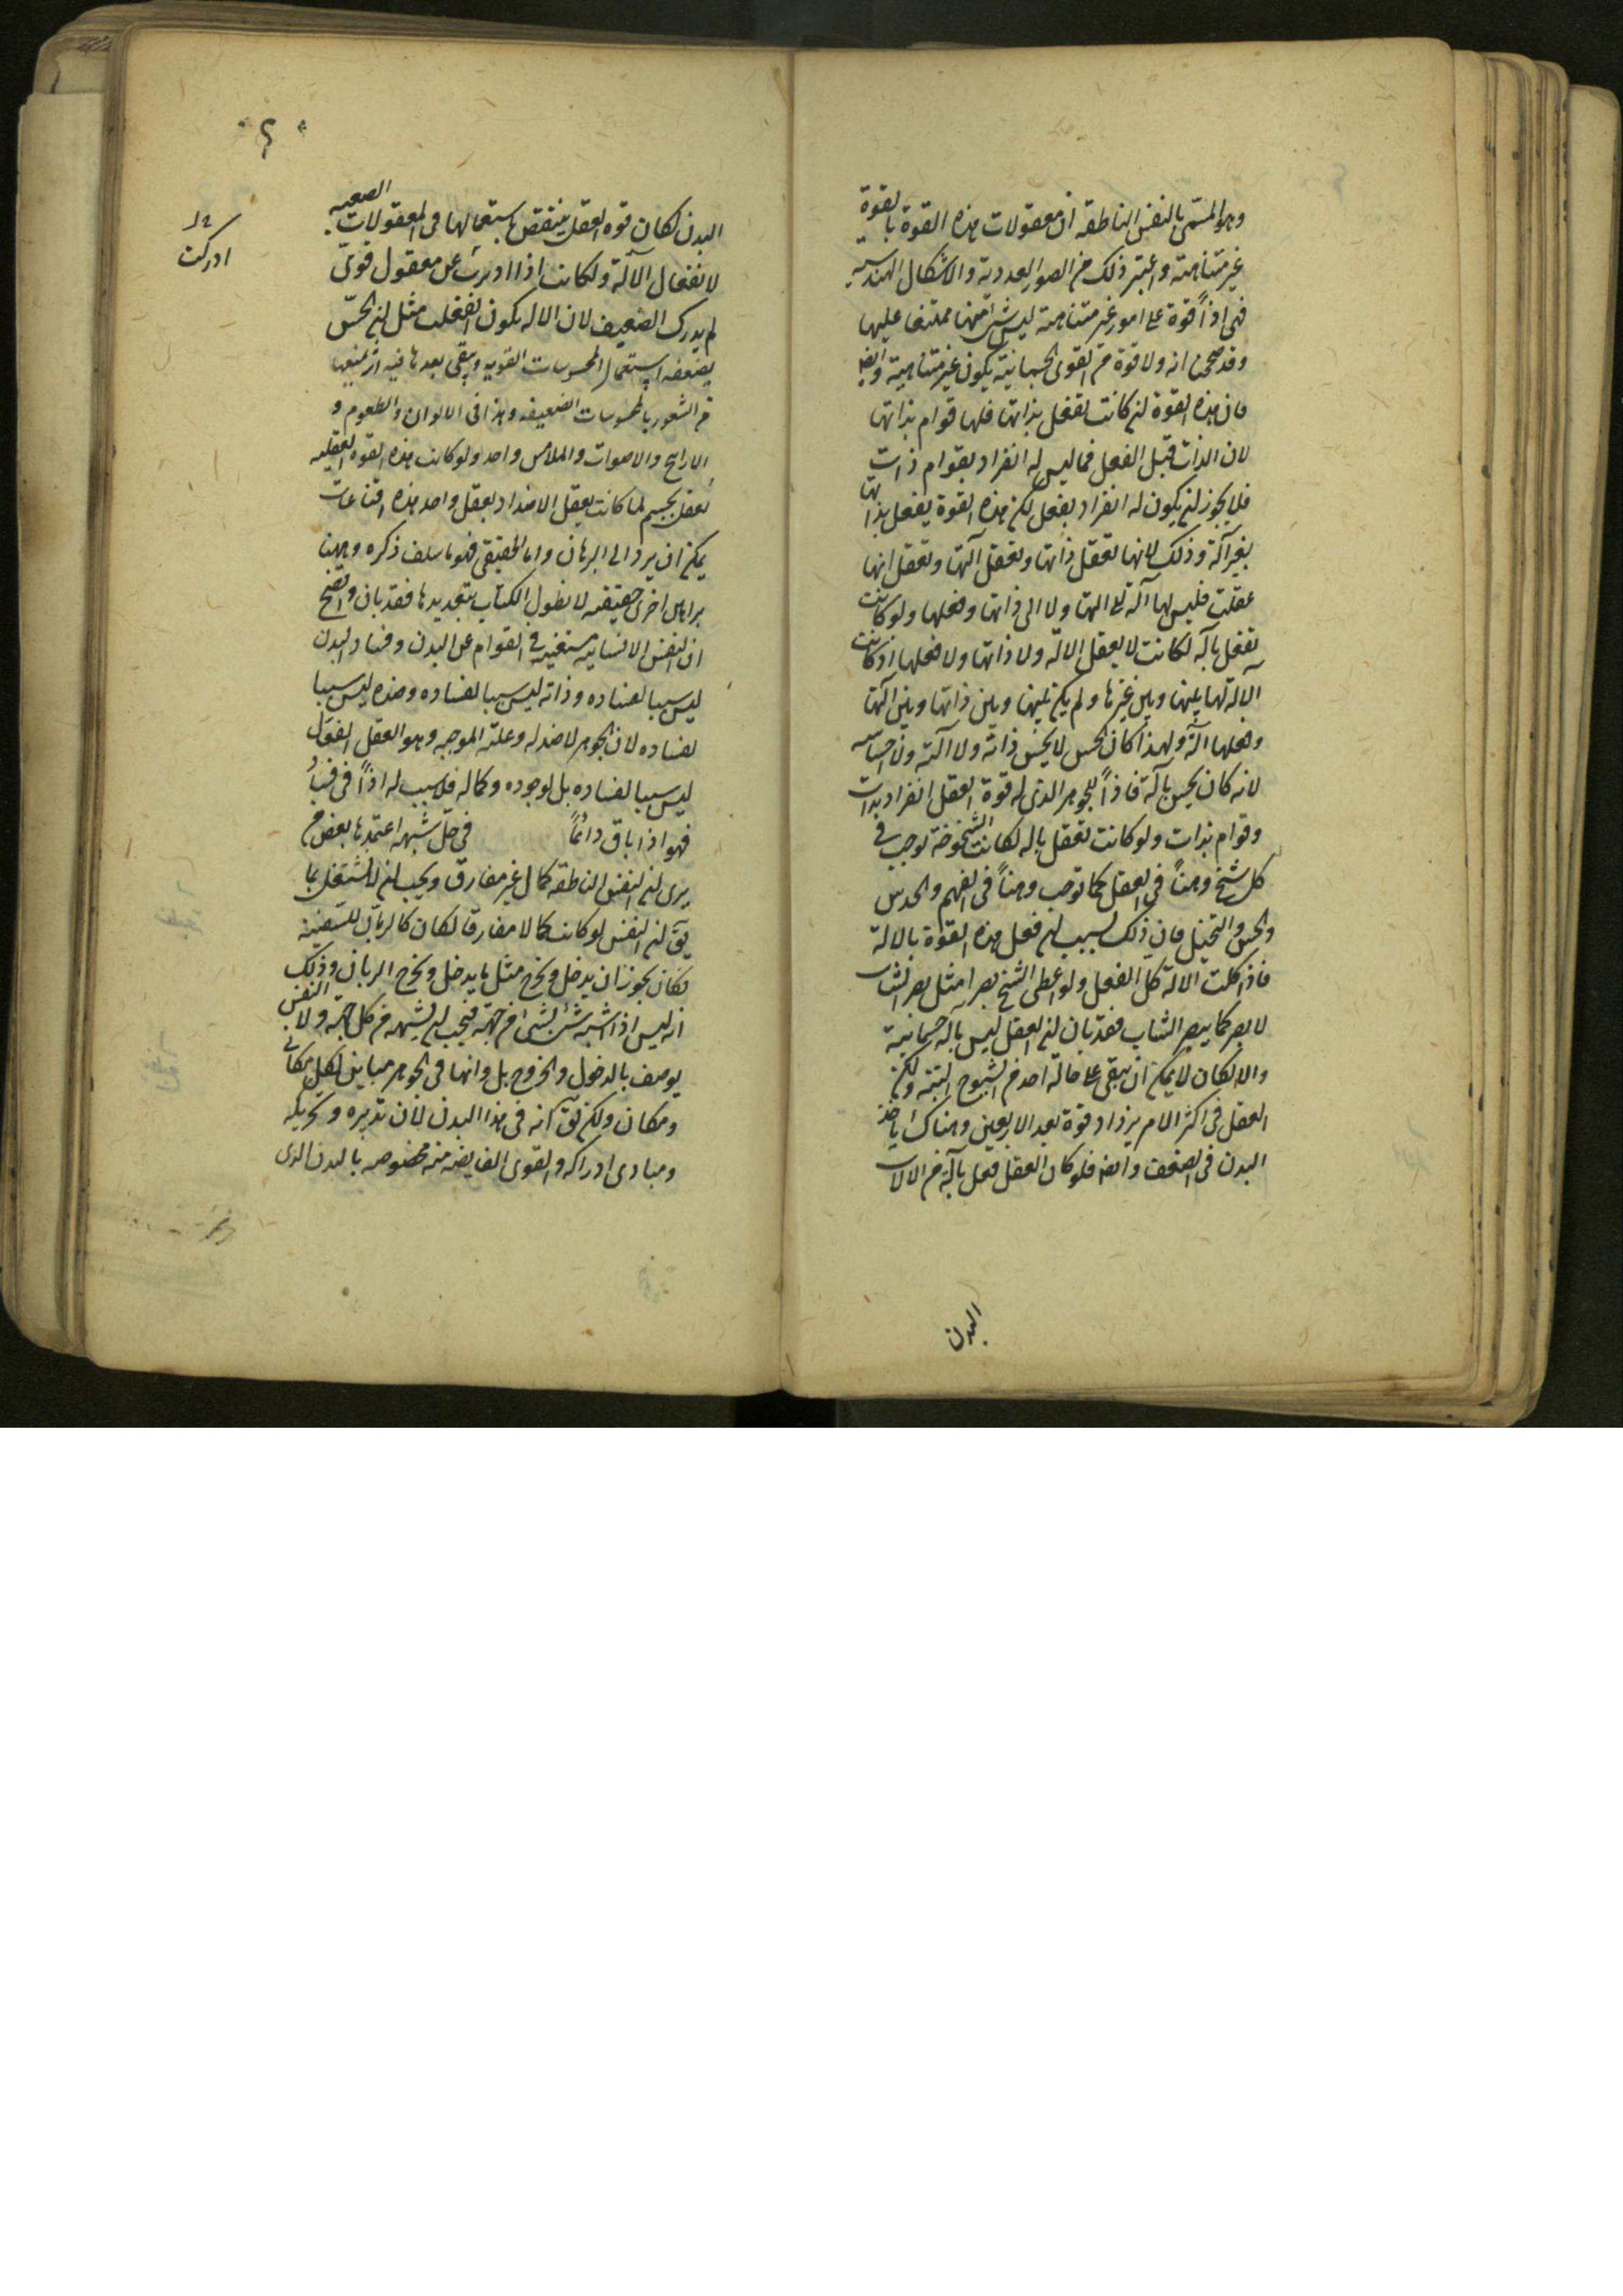 وهو المسمى بالنفس الناطقه ان معقولات هذه القوة بالقوة
غير متناهية واعتبر ذلك من الصور العددية والاشكال الهندسيه
فهى اذاً قوة على امور غير متناهية ليس شئ منها ممتنعا عليها
وقد صححنا انه ولا قوة من القوى الجسمانية يكون غير متناهية وايضا
فان هذه القوة ان كانت تفعل بذاتها فلها قوام بذاتها
لان الذات قبل الفعل فما ليس له انفراد بقوام ذات
فلا يجوز ان يكون له انفراد بفعل لكن هذه القوة يفعل بذاتها
بغير آلة وذلك لانها تعقل ذاتها وتعقل آلتها وتعقل انها
عقلت فليس لها آلة الى آلتها ولا الى ذاتها وفعلها ولو كانت
تفعل بآله لكانت لا يعقل الآلة ولا ذاتها ولا فعلها اذ كانت
الالة لها بينها وبين غيرها ولم يكن بينها وبين ذاتها وبين آلتها
وفعلها آلة ولهذا كان الحس لا يحس ذاته ولا آلته ولا احساسه
لانه كان يحس بآلة فاذاً للجوهر الذى له قوة العقل انفراد بذات
وقوام بذات ولو كانت تعقل باله لكانت الشيخوخة توجب فى
كل شيخ وهناً فى العقل كما توجب وهناً فى الفهم والحدس
والحس والتخيل فان ذلك لسبب ان فعل هذه القوة بالالة
فاذا كلت الالة كل الفعل ولو اعطى الشيخ بصرا مثل بصر الشاب
لابصر كما يبصر الشاب فقد بان ان العقل ليس بآلة جسمانية
والا لكان لا يمكن ان يبقى على حالة احد من الشيوخ البتة ولكن
العقل فى اكثر الامر يزداد قوة بعد الاربعين وهناك ياخذ
البدن فى الضعف وايضا فلو كان العقل فعل بآلة من الالات
البدن
البدن لكان قوه العقل ينقض باستعمالها فى المعقولات الصعبه
لانفعال الآلة ولكانت اذا ادبرت عن معقول قوىّ
ادركت
لم يدرك الضعيف لان الاله يكون انفعلت مثل ان الحسّ
يضعفه استعمال المحسوسات القويه ويبقى بعدها فيه اثر يمنعها
من الشعور بالمحسوسات الضعيفه وهذا فى الالوان والطعوم و
الارايح والاصوات والملامس واحد ولو كانت هذه القوه العقليه
تعقل بجسم لما كانت يعقل الاضداد بعقل واحد هذه اقناعات
يمكن ان يرد الى البرهان واما الحقيقى فهو ما سلف ذكره وههنا
براهين اخرى حقيقيه لا نطول الكتاب بتعديدها فقد بان واتضح
ان النفس الانسانيه مستغنيه فى القوام عن البدن وفساد البدن
ليس سببا لفساده وذاته ليس سببا لفساده وضده ليس سببا
لفساده لان الجوهر لا ضد له وعلته الموجبه وهو العقل الفعال
ليس سببا لفساده بل لوجوده وكماله فلا سبب له اذاً فى فساد
فهو اذا باق دائماً فى حل شبهه اعتمدها بعض من
يرى ان النفس الناطقه كمال غير مفارق ويجب ان لا يشتغل بما
يق ان النفس لو كانت كمالا مفارقا لكان كالربان للسفينة
لكان يجوز ان يدخل ويخرج مثل ما يدخل ويخرج الربان وذلك
انه ليس اذا اشبه شئ بشئ من جهة فيجب ان يشبهه من كل جهة ولا النفس
يوصف بالدخول والخروج بل وانها فى الجوهر مباين لكل مكانى
ومكان ولكن يق انه فى هذا البدن لان تدبيره وتحريكه
ومبادى ادراكه والقوى الفايضه منه مخصوصه بالبدن الذى